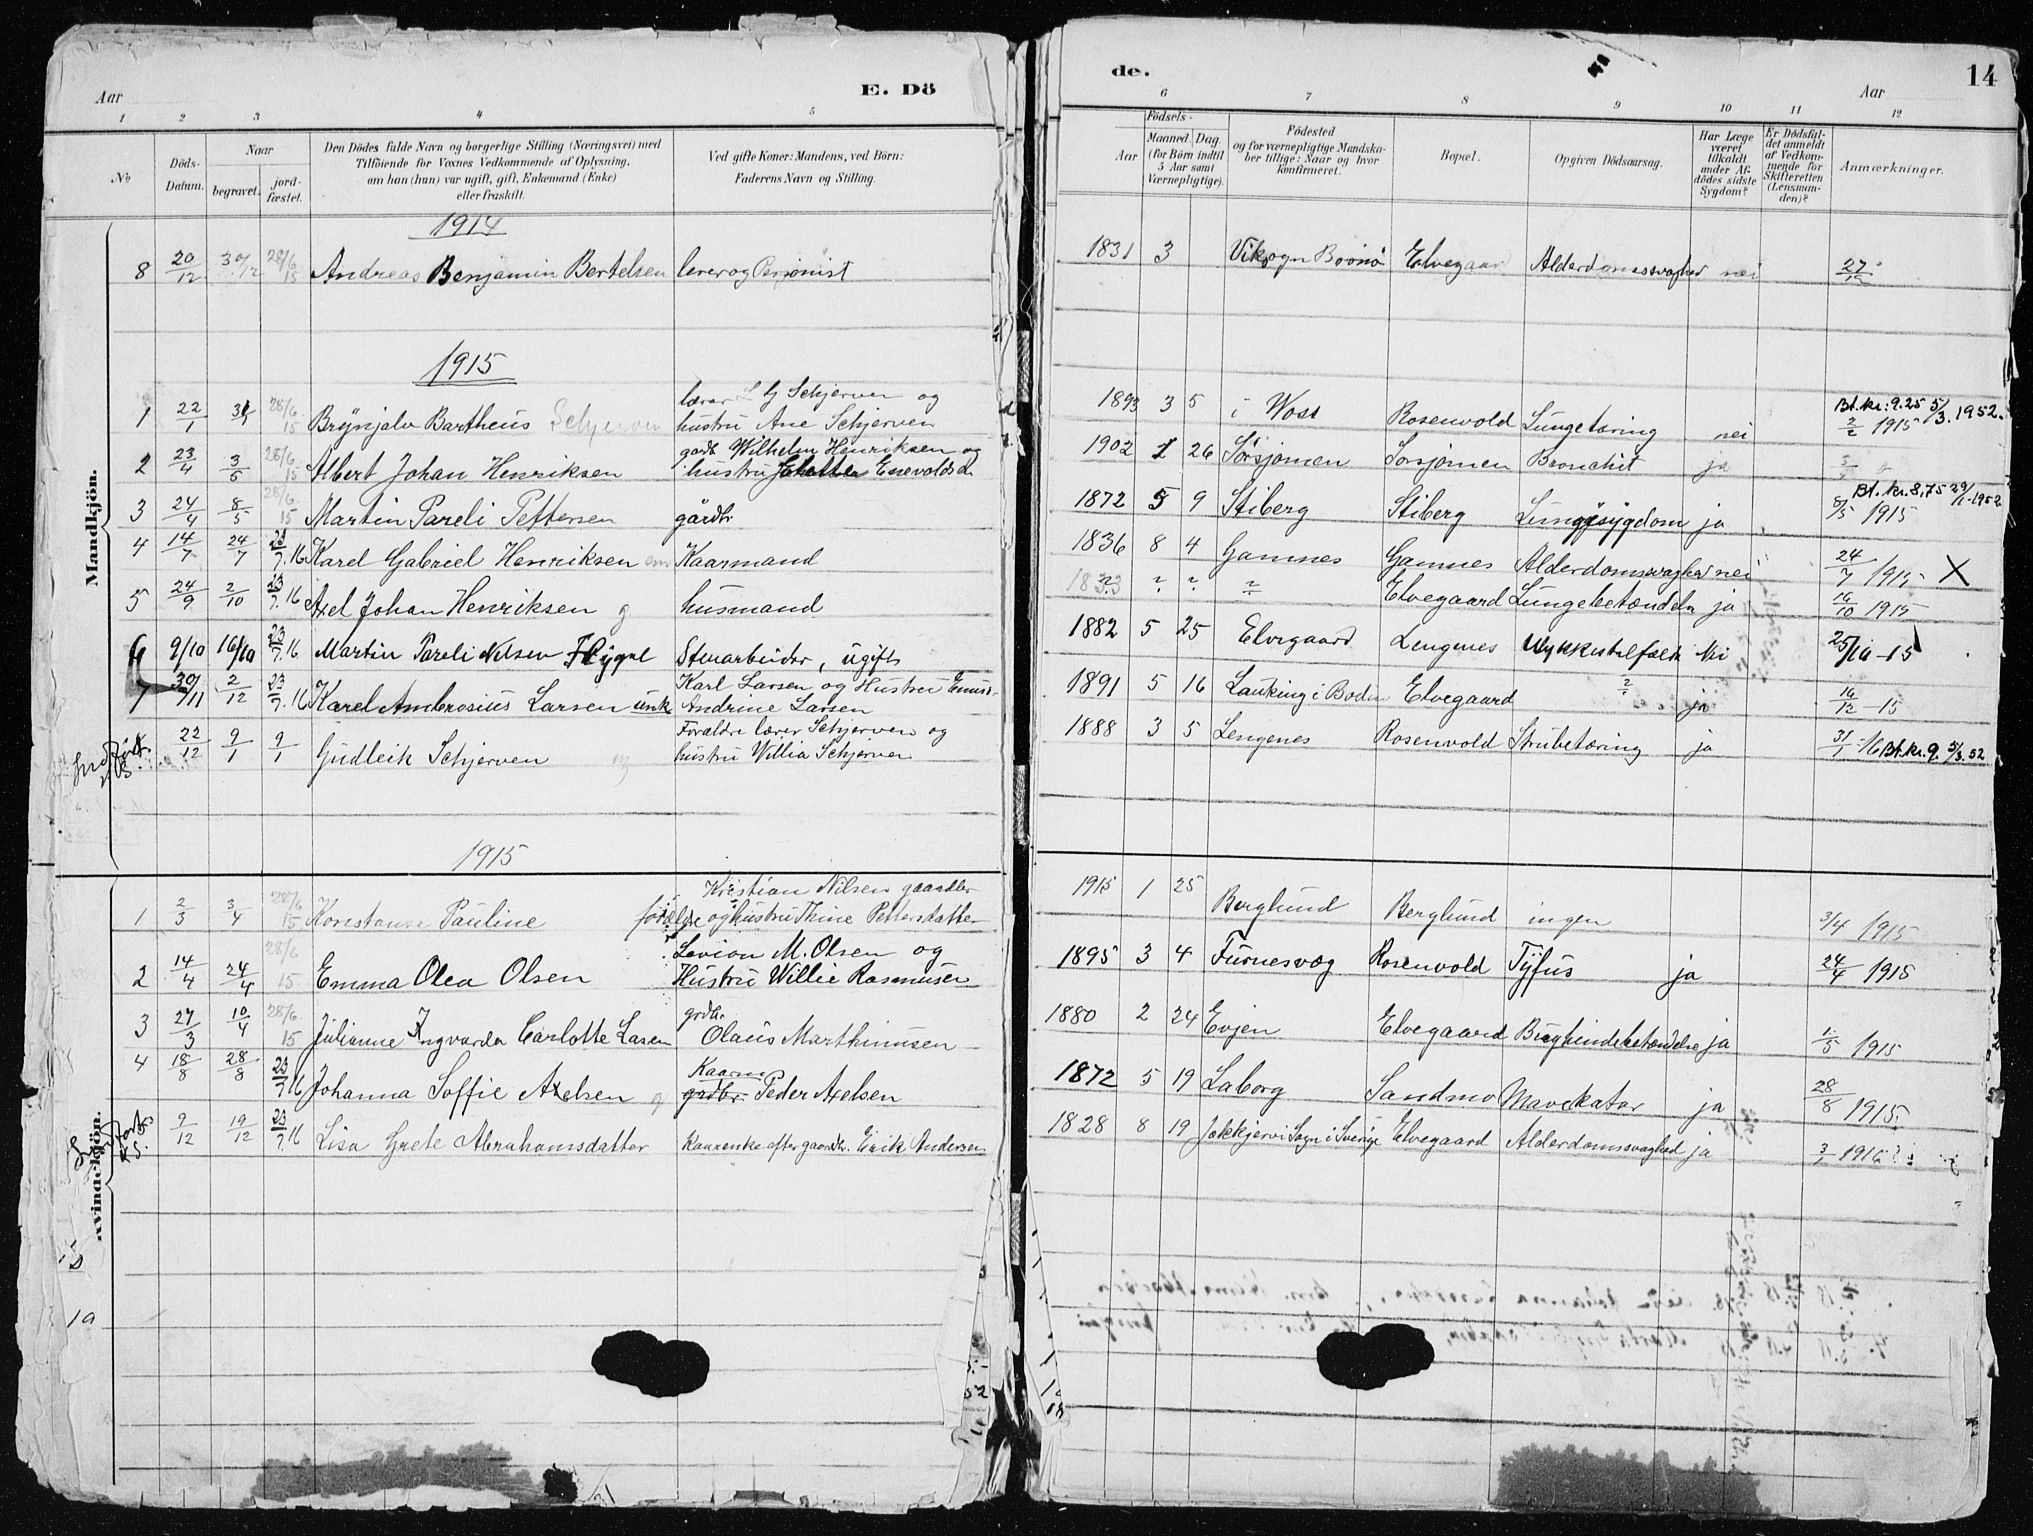 Aar
E. Dö
de.
Aar
14
1 2 3 4 5
6 7 8 9 10 11 12
No
Döds-Datum.
Naar
begravet.
jord-fæstet.
Den Dödes fulde Navn og borgerlige Stilling (Næringsvei) med
Tilföiende for Voxnes Vedkommende af Oplysning,
om han (hun) var ugift, gift, Enkemand (Enke)
eller fraskilt.
Ved gifte Koner: Mandens, ved Börn:
Faderens Navn og Stilling.
Födsels-
Aar
Maaned. Dag.
(for Börn indtil
5 Aar samt
Værnepligtige).
Födested
og for værnepligtige Mandska-
ber tillige: Naar og hvor
konfirmeret.
Bopæl.
Opgiven Dödsaarsag.
Har Læge
været
tilkaldt
under Af-
dödes sidste
Sygdom?
Er Dödsfal-
det anmeldt
af Vedkom-
mende for
Skifteretten
(Lensman-
den)?
Anmærkninger.
Mandkjön.
1914
8 20/12 30/12 28/6 15 Andreas Benjamin Bertelsen lærer og Pensionist 1831 3 Viksogn Brønø Elvegaar Alderdomssvaghed nei 27/12
1915
1 22/1 31/1 28/6 15 Brynjolv Bartheus Schjerven lærer L G Schjerven og
hustru Ane Schjerven 1893 3 5 i Woss Rosenvold Lungetæring nei 2/2 1915 Bt. kr: 9.25 5/3. 1952.
2 23/4 3/5 28/6 15 Albert Johan Henriksen gårdb Wilhelm Henriksen og
hustru Enevoldsd 1902 1 26 Sørsjømen Sørsjømen Bronchit ja
3 24/4 8/5 28/6 15 Martin Pareli Pettersen gårdbr 1872 5 9 Stiberg Stiberg Lungesygdom ja 8/5 1915 Bt. kr. 8,75 29/1-1952
4 14/7 24/7 23/7.16 Karel Gabriel Henriksen em Kaarmand 1836 8 4 Gamnes Gamnes Alderdomssvaghed nei 24/7 1915 X
5 24/9 2/10 23/7.16 Axel Johan Henriksen g husmand 1833 ? ? ? Elvegaard Lungebetændelse ja 16/10 1915
6 9/10 16/10 23/7.16 Martin Pareli Nilsen Flygel Stenarbeider, ugift 1882 5 25 Elvegaard Lengenes Ulykkestilfælde Nei 25/10-15
7 30/11 2/12 23/7.16 Karel Ambrosius Larsen unk Karl Larsen og Hustru
Andrine Larsen 1891 5 16 i Bodin Elvegaard ? ja 16/12-15
Indført 22/12 9/1 9/1 Gudleik Schjerven Foraldre lærer Schjerven og
hustru Willia Schjerven 1888 3 5 Lengenes Rosenvold Strubetæring ja 31/1 16 Bt. kr. 9. 5/3.52
1915
Kvindekjön.
1 2/3 3/4 28/6 15 Konstanse Pauline forælre Kristian Nilsen gaardbr
og hustru Trine Pettersdatter 1915 1 25 Berglund Berglund ingen 3/4 1915
2 14/4 24/4 28/6 15 Emma Olea Olsen M. Olsen og
Hustru Willie Rasmusen 1895 3 4 Furnesvæg Rosenvold Tyfus ja 24/4 1915
3 27/3 10/4 28/6 15 Julianne Ingvarda Carlotte Lasen grdbr.
Olaus Marthinusen 1880 2 24 Evjen Elvegaard Brysthindebetændelse ja 1/5 1915
4 18/8 28/8 23/7 16 Johanna Soffie Axelsen g Kaarm
grdbr. Peder Axelsen 1872 5 19 Laberg Sandmo Mavekatar ja 28/8 1915.
9/12 19/12 23/7.16 Lisa Grete Abrahamsdatter Kaarenke efter gaardbr. Erik Andersen 1828 8 19 Jokkjervi Sogn i Sverige Elvegaard Alderdomssvaghed ja 3/1 1916